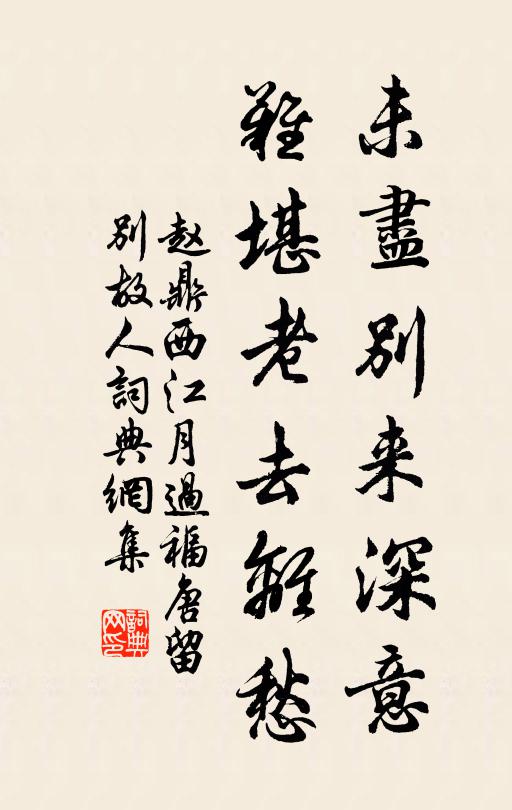 未盡別来深意
難堪老去離愁
赵鼎西江月過福唐留
別故人詞典網集
詞典
网印